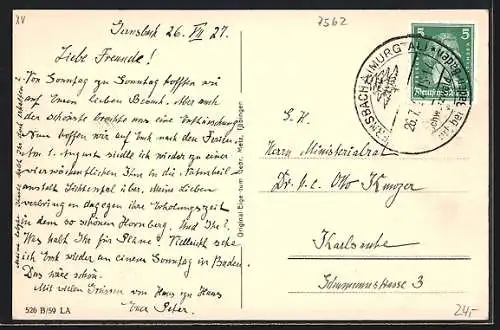 XV
7562
Gernsbach 26. VII 27.
Liebe Freunde!
Von Sonntag zu Sonntag hofften wir
auf Euren lieben Besuch. Aber auch
der schönste brachte uns eine Enttäuschung
Nun hoffen wir auf Euch nach den Ferien.
Am 1. August siedle ich wieder zu einer
vierwöchentlichen Kur in die
anstalt Lichtental über, meine Lieben
verbringen dagegen ihre Erholungszeit
in dem so schönen Hornberg. Und Ihr?
Was habt Ihr für Pläne? Vielleicht sehe
ich Euch wieder an einem Sonntag in Baden.
Das wäre schön.
Mit vielen Grüssen von Haus zu Haus
Euer Peter.
526 B/59 LA
Original Eigentum Metz, Tübingen
GERNSBACH (MURGTAL)
26.7.
5 5
Deutsches Reich
S. H.
Herrn Ministerialrat
Dr. h.c. Otto
Karlsruhe
3
24,-